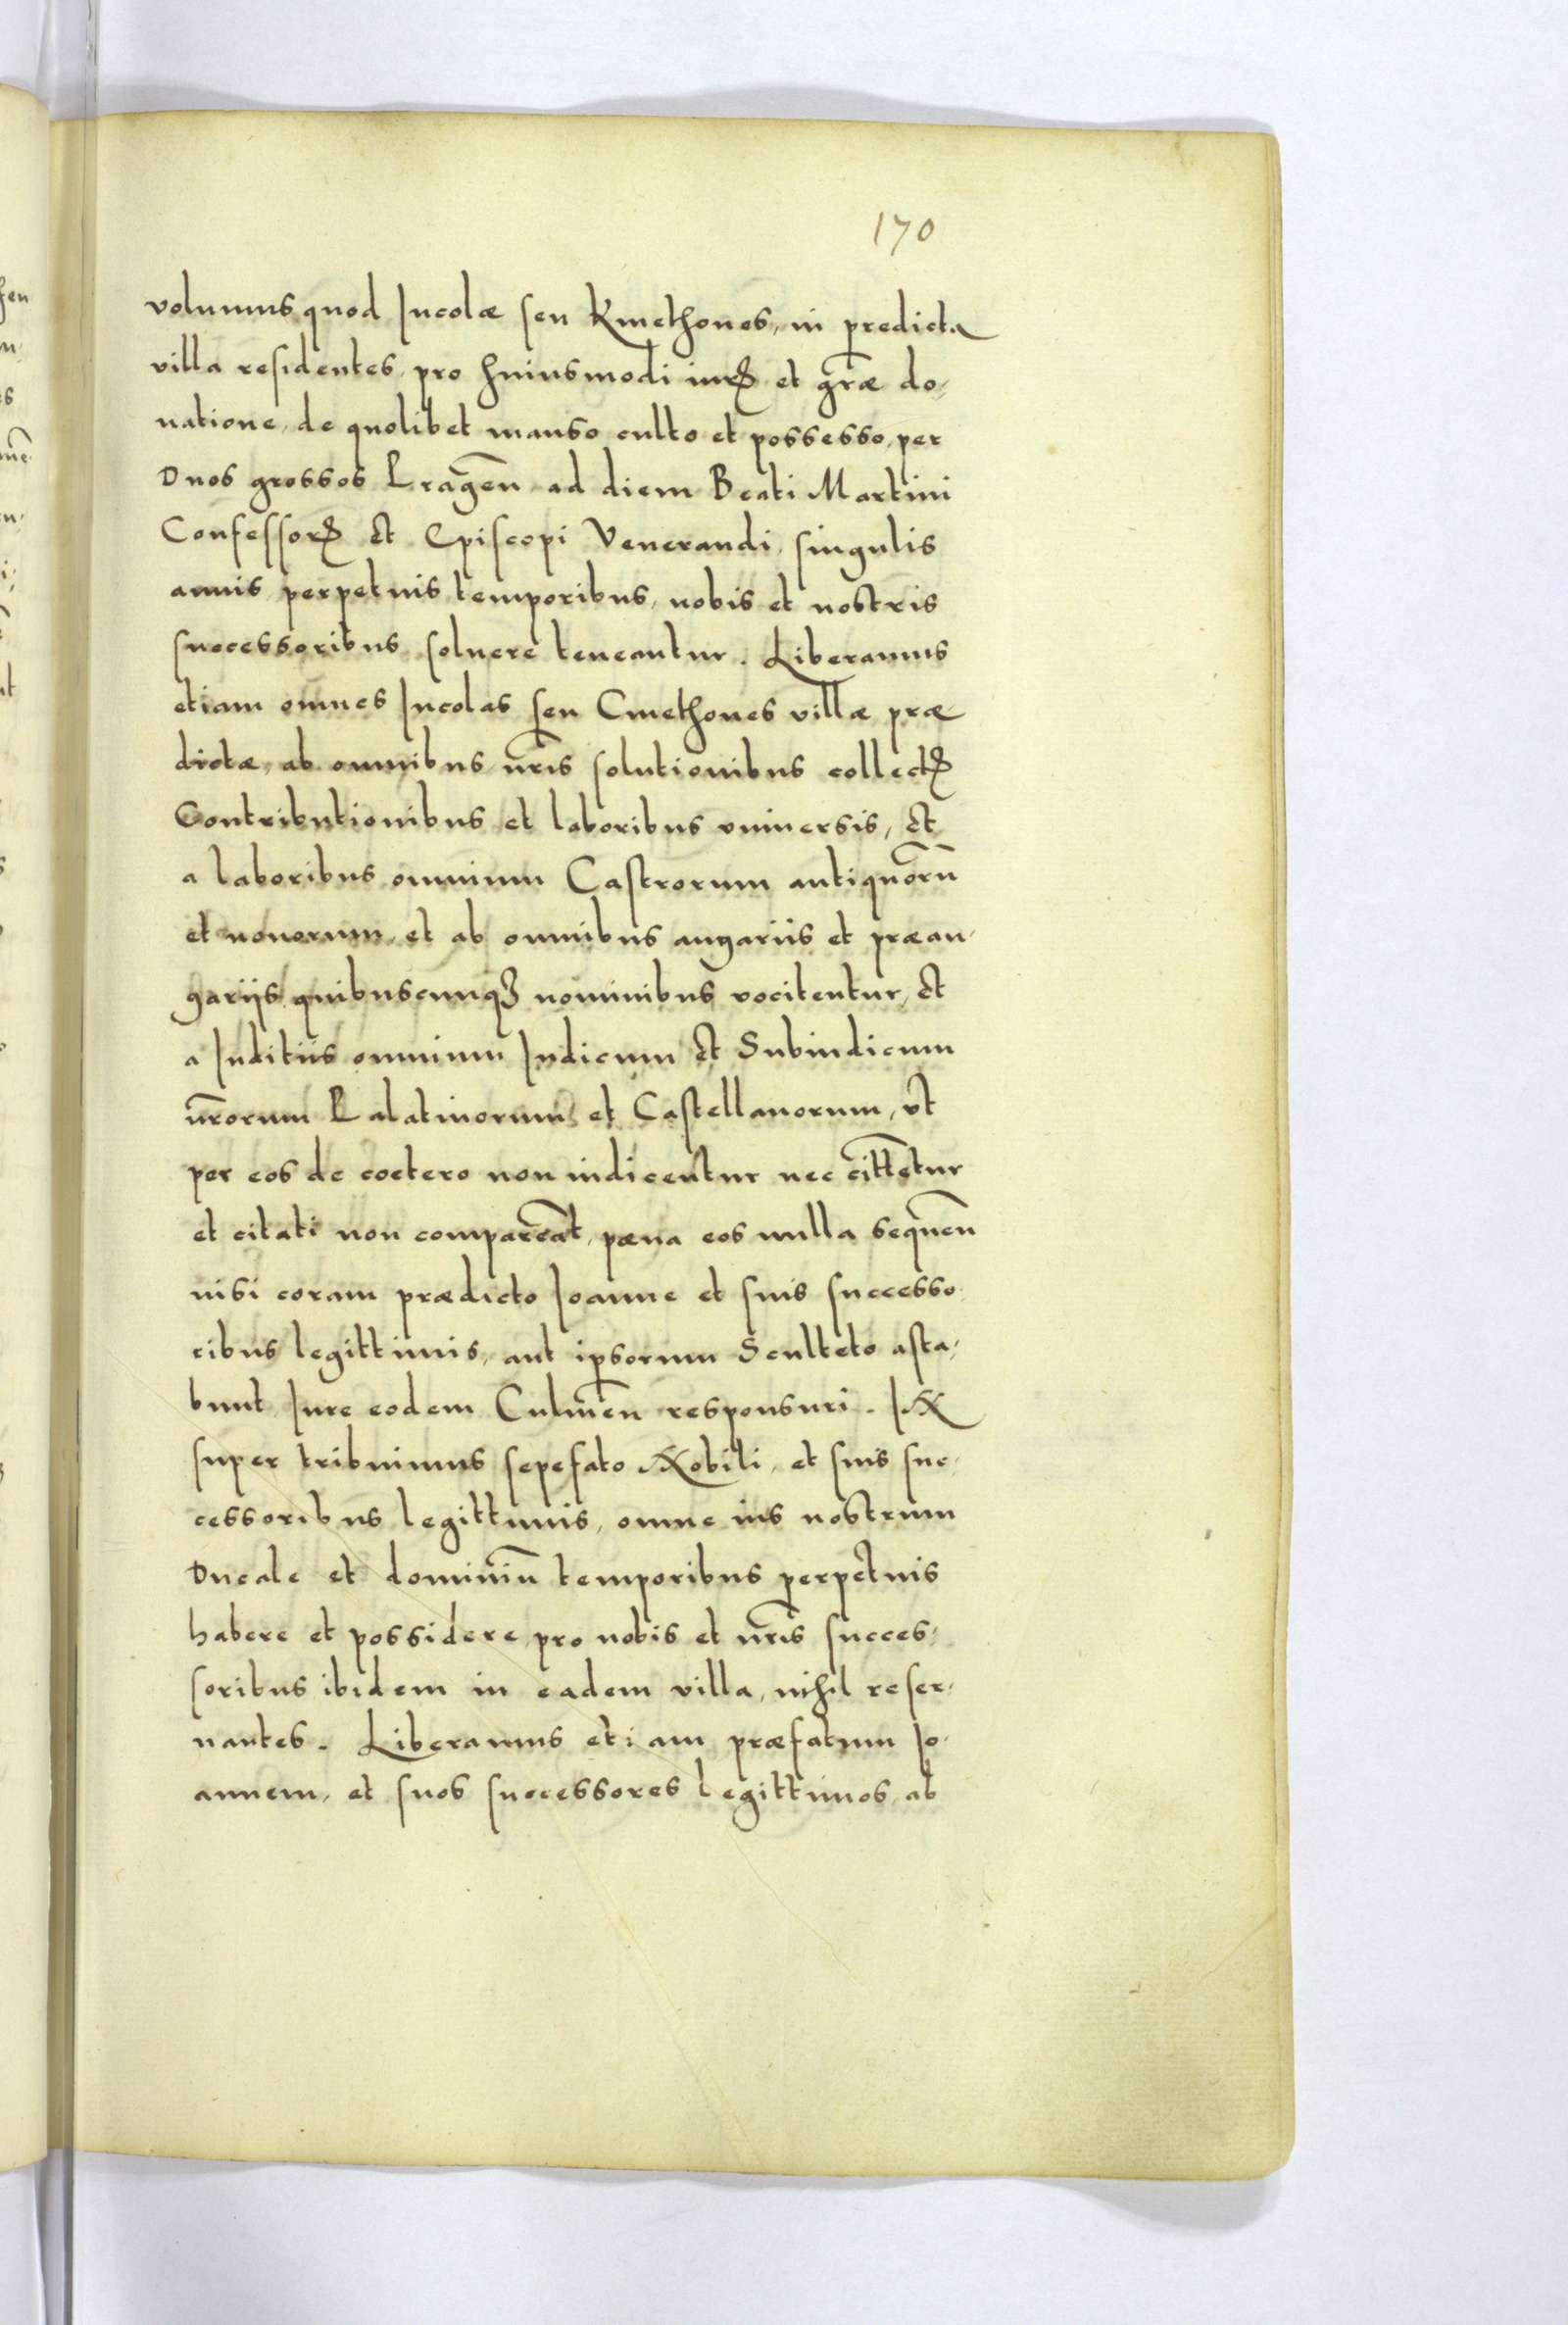 170
volumus quod Incolæ seu Kmethones, in predicta
villa residentes pro huiusmodi iurꝭ et gr̃æ do-
natione, de quolibet manso culto et possesso, per
Duos grossos Pragen̄ ad diem Beati Martini
Confessorꝭ et Episcopi Venerandi, singulis
annis perpetuis temporibus, nobis et nostris
successoribus soluere teneantur. Liberamus
etiam omnes Incolas seu Cmethones villæ præ
dictæ, ab omnibus nr̃is solutionibus collectꝭ
Contributionibus et laboribus vniuersis, et
a laboribus omnium Castrorum antiquor̃ū
et nouorum, et ab omnibus angariis et præan-
gariis quibuscunqꝫ nominibus vocitentur, et
a Iuditiis omnium Iudicum et Subiudicum
nr̃orum Palatinorum, et Castellanorum, vt
per eos de coetero non iudicentur nec citt̄etur
et citati non comparēāt, pæna eos nulla sequen̄
nisi coram prædicto Ioanne et suis successo
ribus legittimis, aut ipsorum Sculteto asta-
bunt Iure eodem Culmen̄ responsuri. IN
super tribuimus sepefato Nobili, et suis suc-
cessoribus legittimis, omne ius nostrum
Ducale et dominiū temporibus perpetuis
habere et possidere pro nobis et nr̃is succes-
soribus ibidem in eadem villa, nihil reser-
uantes. Liberamus etiam præfatum Io-
annem, et suos successores legittimos ab